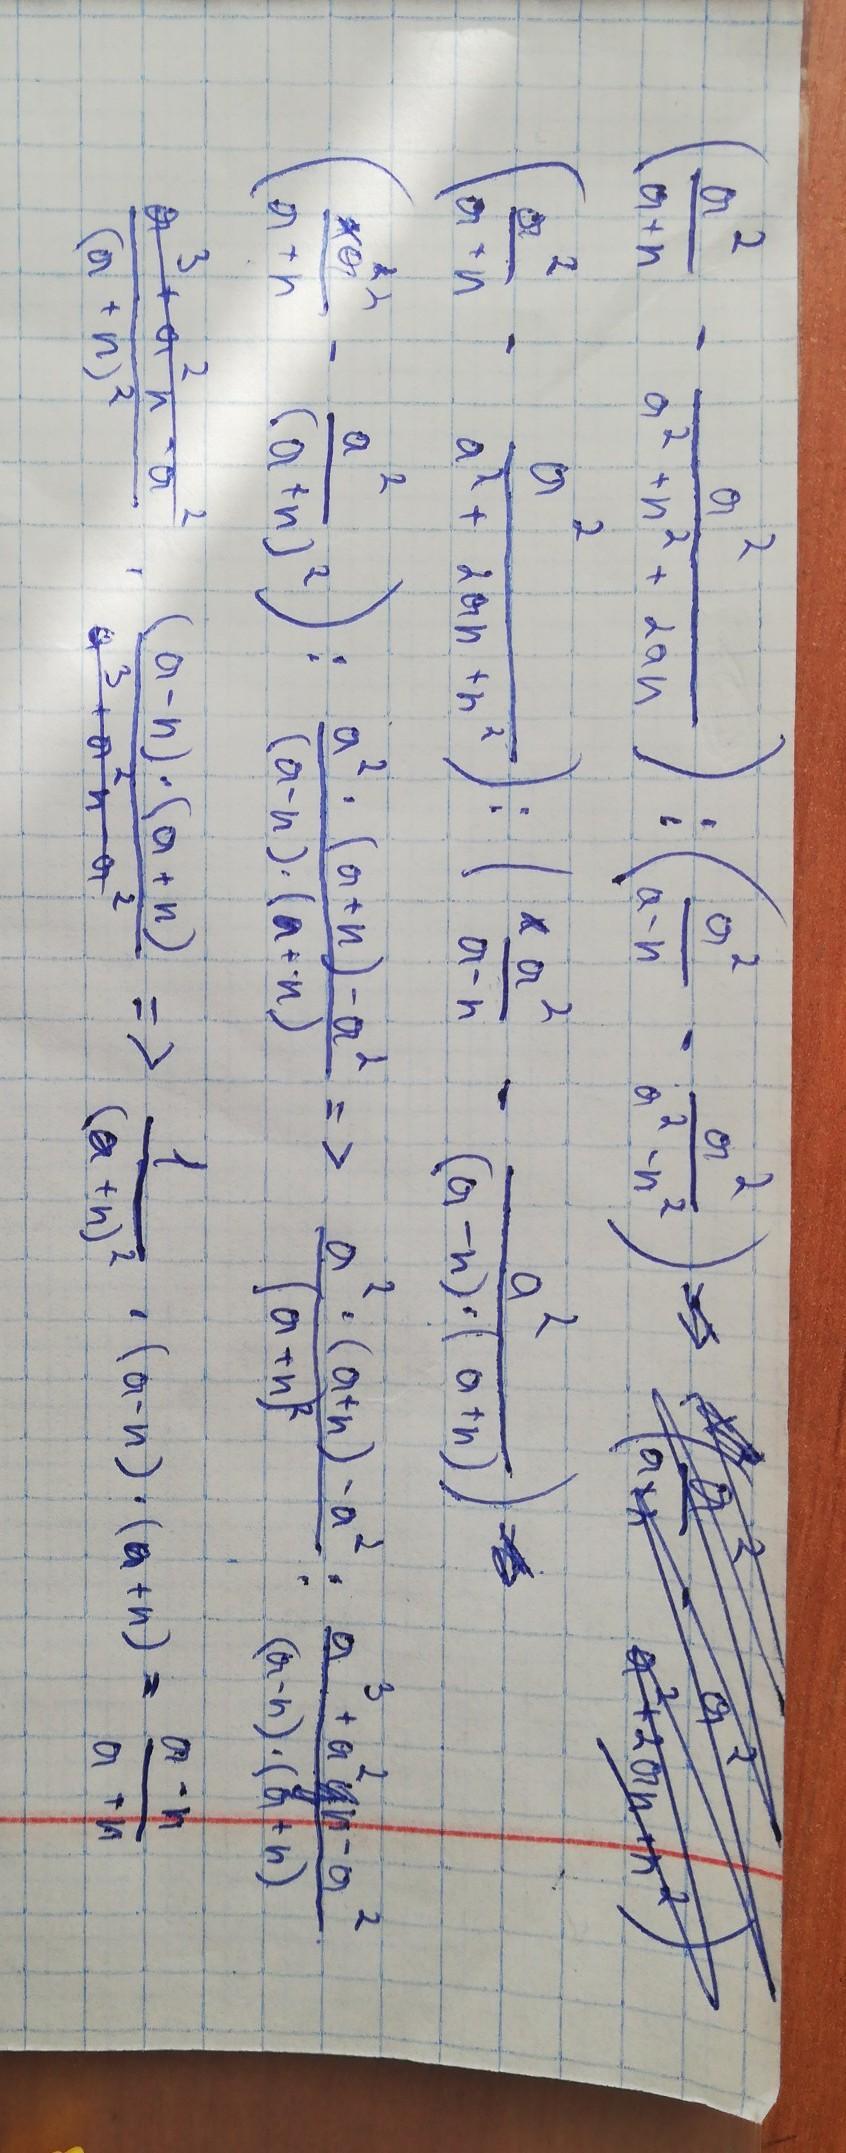 (a²/(a+n) - a²/(a²+n²+2an)) : (a²/(a-n) - a²/(a²-n²))
(a²/(a+n) - a²/(a²+2an+n²)) : (a²/(a-n) - a²/((a-n)·(a+n)))
(a²/(a+n) - a²/(a+n)²) : (a²·(a+n)-a²)/((a-n)·(a+n)) => (a²·(a+n)-a²)/(a+n)² : (a³+a²n-a²)/((a-n)·(a+n))
(a³+a²n-a²)/(a+n)² · ((a-n)·(a+n))/(a³+a²n-a²) => 1/(a+n)² · (a-n)·(a+n) = (a-n)/(a+n)